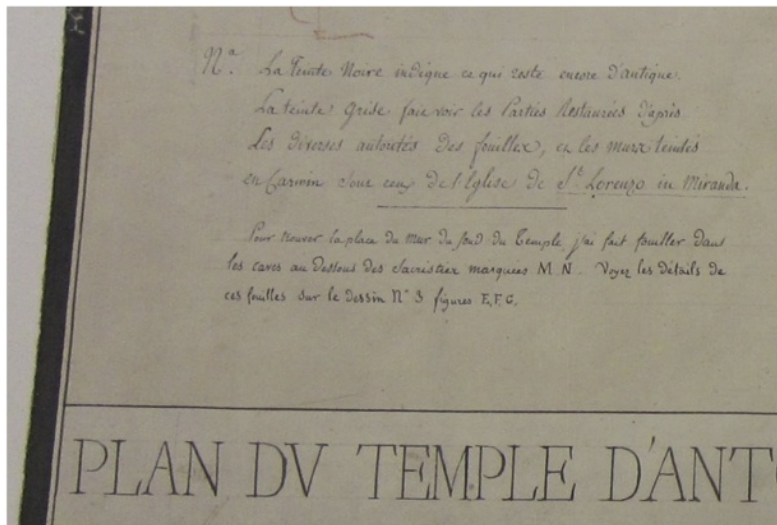 Nª. La Teinte Noire indique ce qui reste encore d'antique.
La teinte Grise faie voir les Parties Restaurées d'après
Les diverses autorités des fouilles, et les murs teintés
en Carmin sour ceux de l'Eglise de St. Lorenzo in Miranda.
Pour trouver la place du mur du fond du Temple, j'ai fait fouiller dans
les caves au dessous des sacristies marquées M.N. Voyez les détails de
ces fouilles sur le dessin N° 3 figures E.F.G.
PLAN DV TEMPLE D'ANT